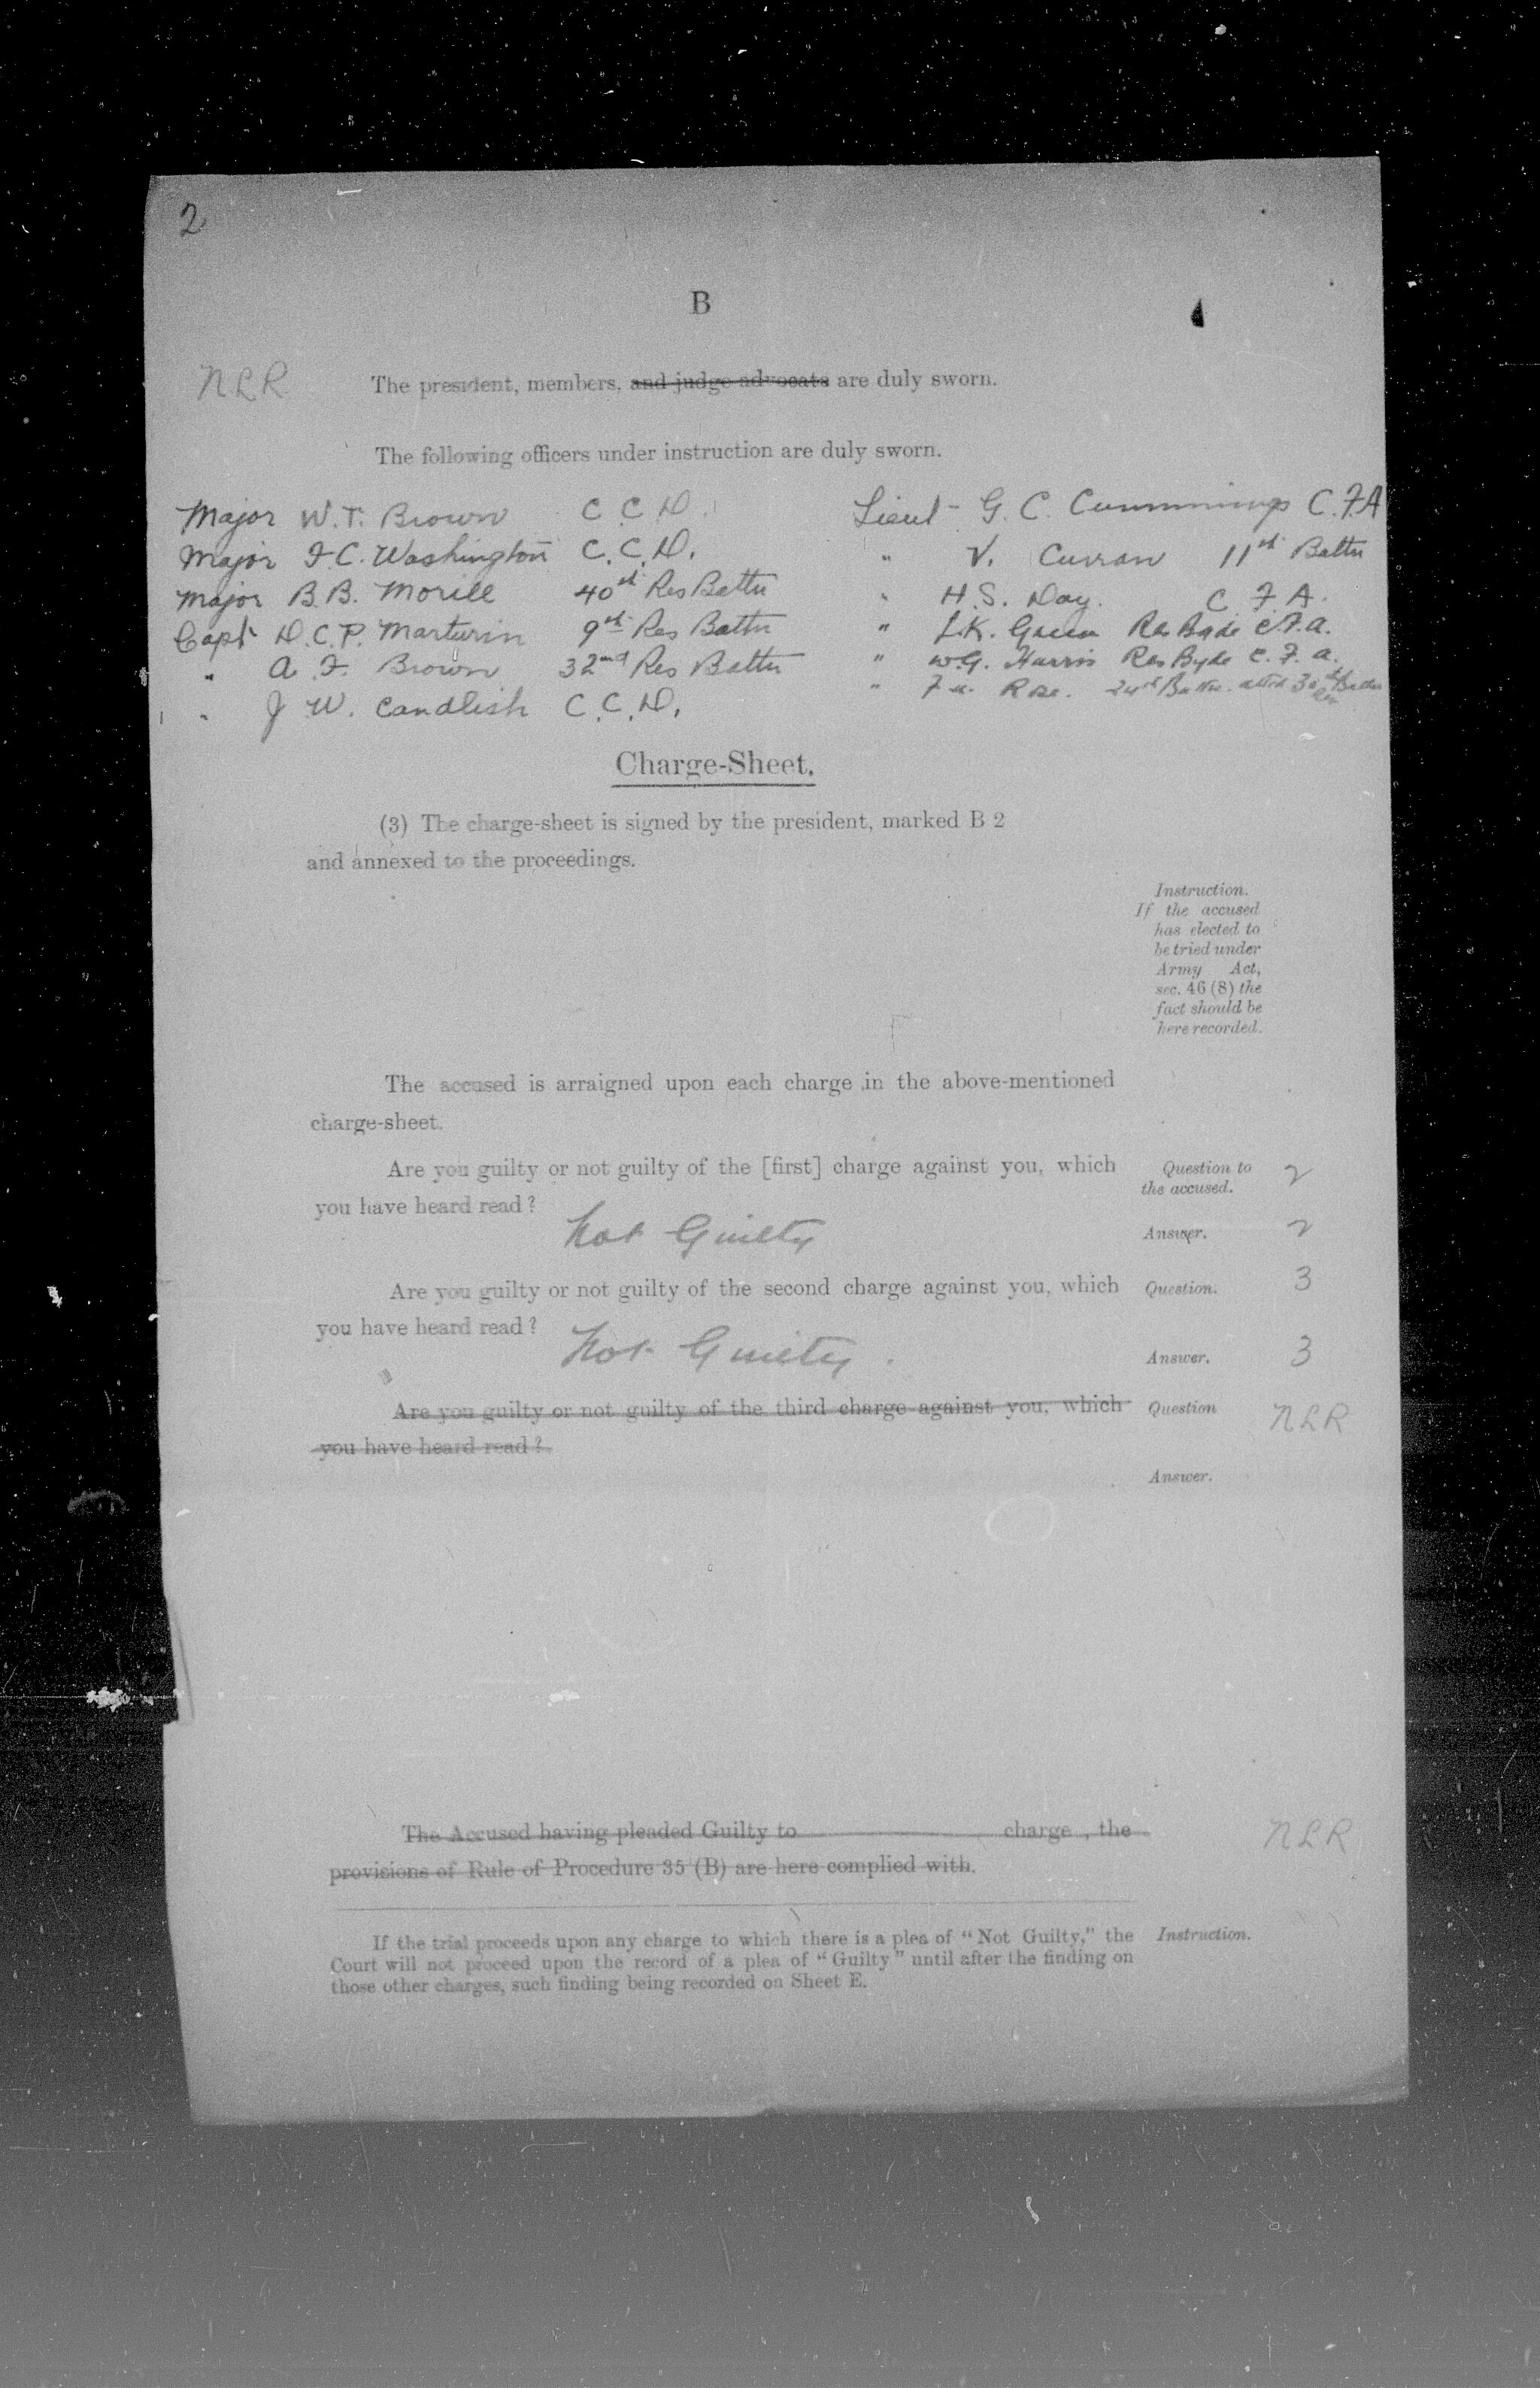 2
B
NLR The president, members, and judge advocate are duly sworn.
The following officers under instruction are duly sworn.
Major W.T. Brown C C D.
Major F.C. Washington C.C.D.
Major B.B. Morill 40th Res Battn
Capt D.C.P. Marturin 9th Res Battn
" A.F. Brown 32nd Res Battn
" J W. Candlish C.C.D.
Lieut - G. C. Cummings C.F.A
" V. Curran 11th Battn
" H.S. Day. C F A.
" L.K. Green Res Bgde C.F.A.
" W.G. Harris Res Bgde C.F.A.
" F. Rose. 24th Battn. attd 30th Res Battn
Charge-Sheet.
(3) The charge-sheet is signed by the president, marked B 2
and annexed to the proceedings.
Instruction.
If the accused
has elected to
be tried under
Army Act,
sec. 46 (8) the
fact should be
here recorded.
The accused is arraigned upon each charge in the above-mentioned
charge-sheet.
Are you guilty or not guilty of the [first] charge against you, which
you have heard read?
Question to 2
the accused.
Not Guilty
Answer. 2
Are you guilty or not guilty of the second charge against you, which Question. 3
you have heard read?
Not Guilty.
Answer. 3
Are you guilty or not guilty of the third charge against you, which Question NLR
you have heard read?
Answer.
The Accused having pleaded Guilty to charge , the NLR
provisions of Rule of Procedure 35 (B) are here complied with.
If the trial proceeds upon any charge to which there is a plea of "Not Guilty," the Instruction.
Court will not proceed upon the record of a plea of "Guilty" until after the finding on
those other charges, such finding being recorded on Sheet E.